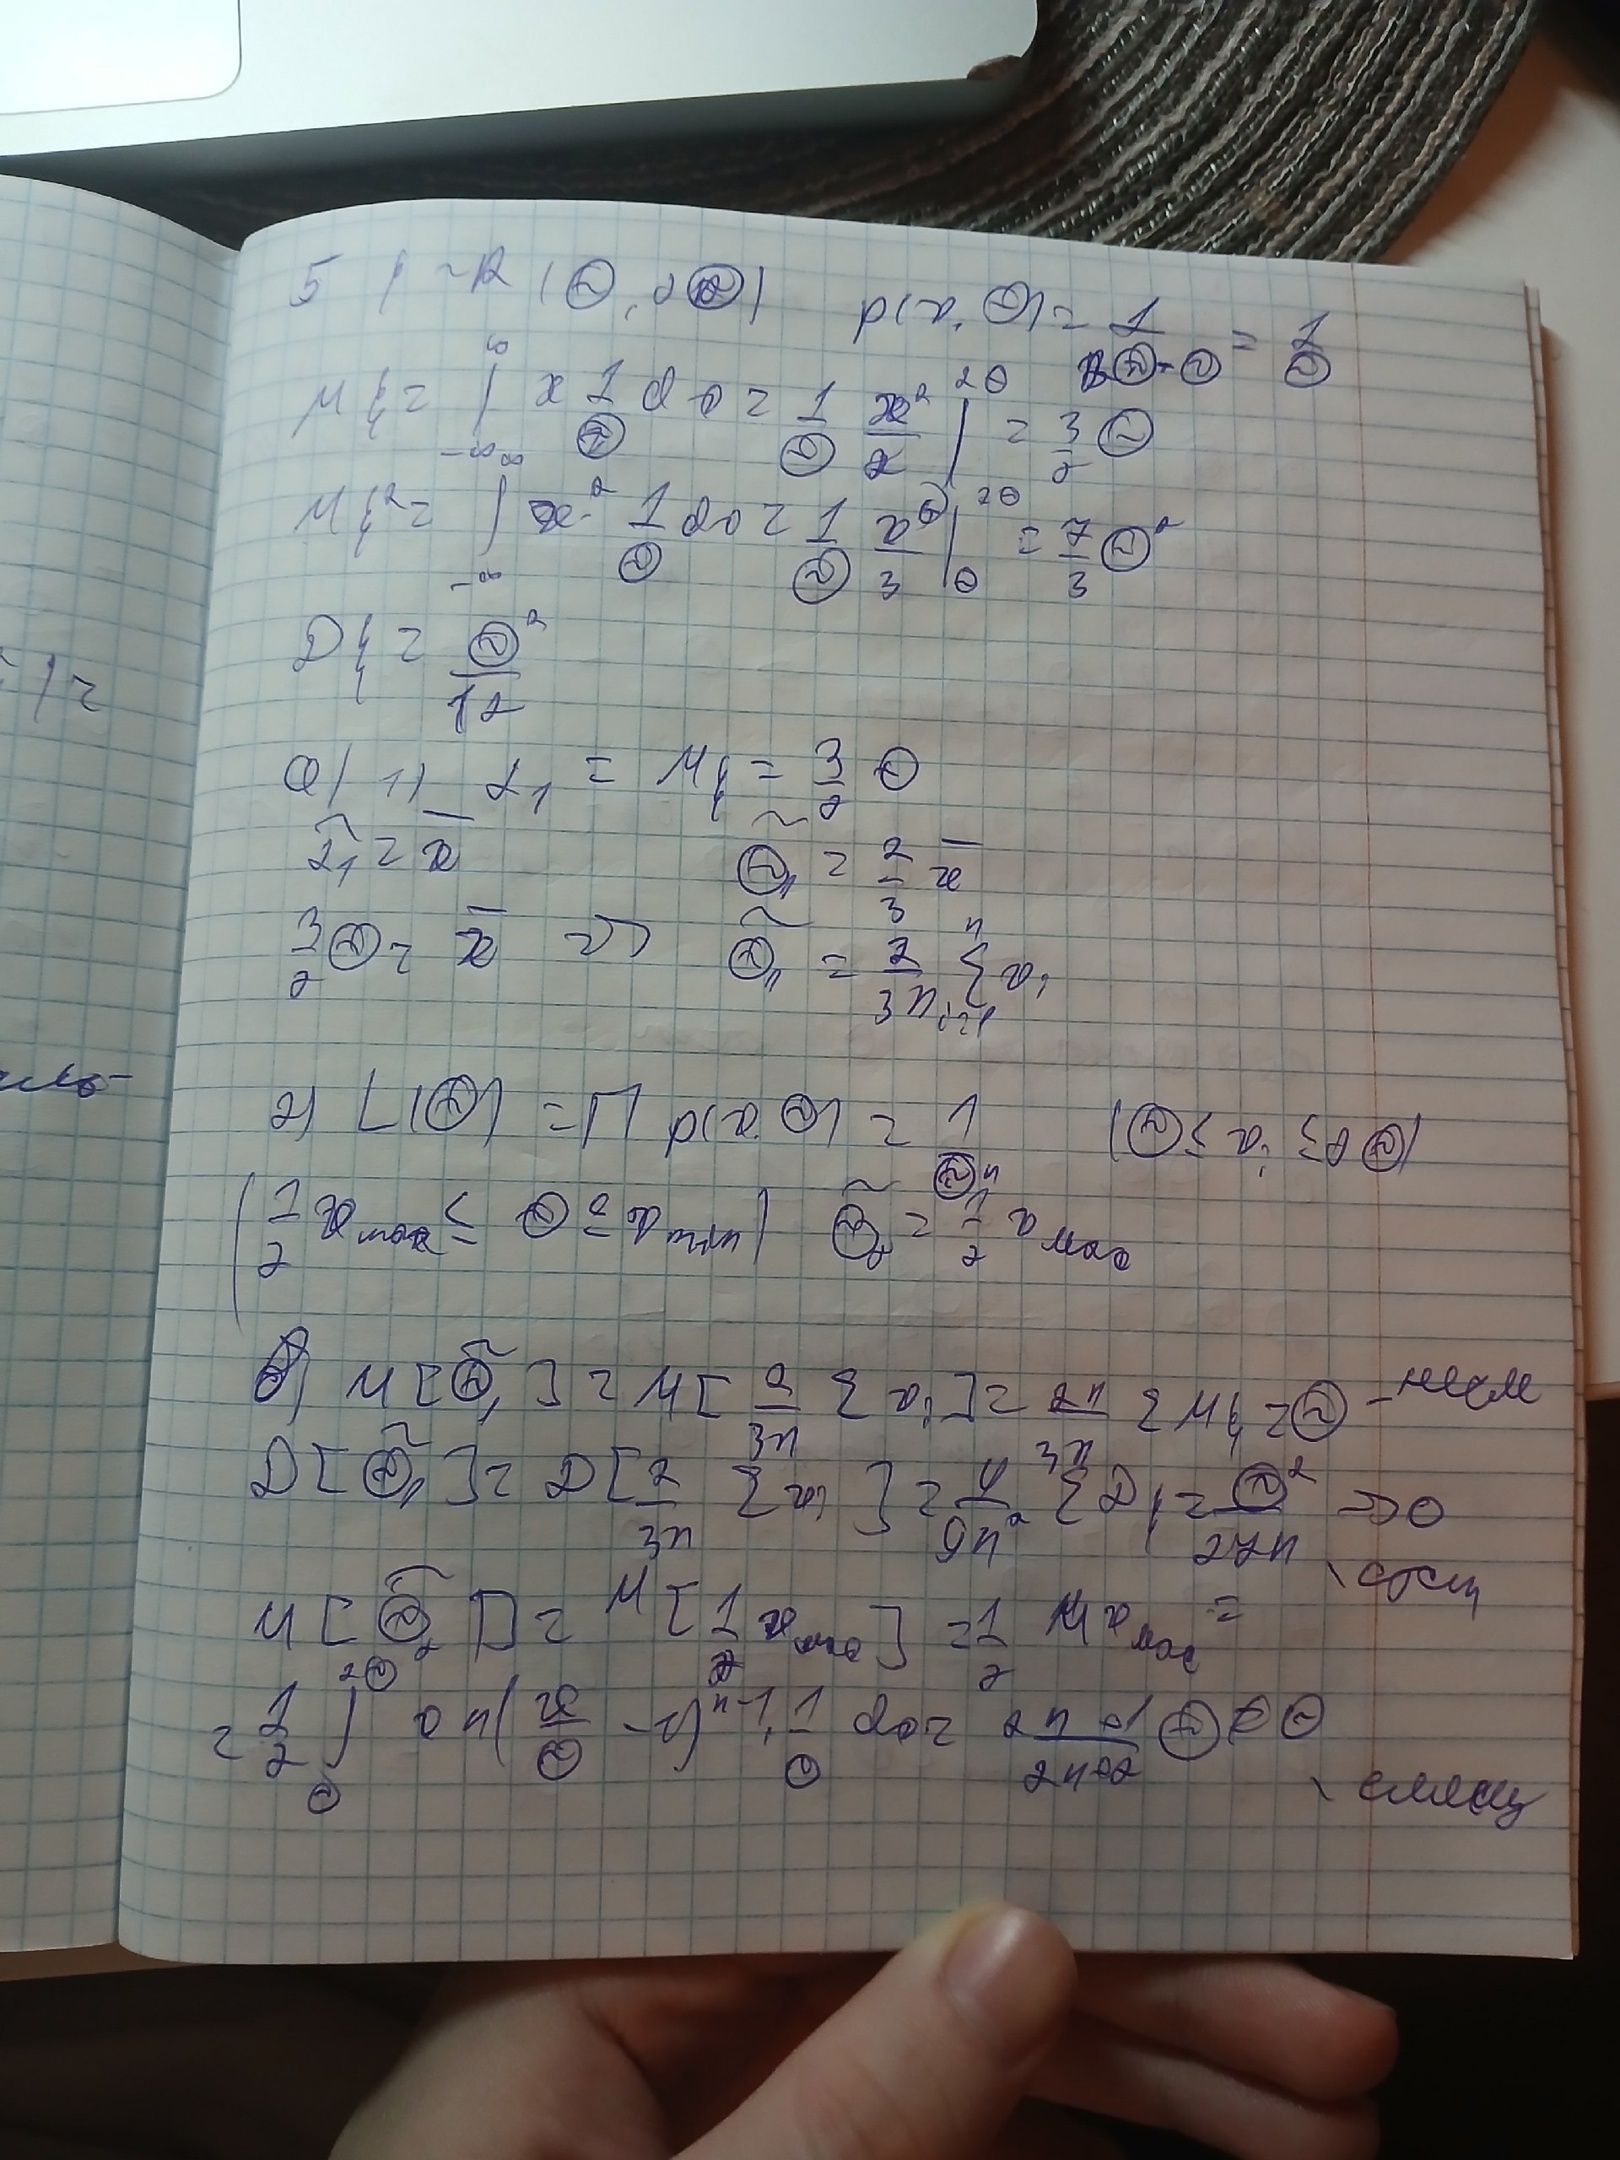 5 ξ ~ R (Θ, 2Θ) p(x, Θ) = 1/(2Θ-Θ) = 1/Θ
Mξ = ∫_{-∞}^{∞} x 1/Θ dx = 1/Θ x²/2 |^{2Θ} = 3/2 Θ
Mξ² = ∫_{-∞}^{∞} x² 1/Θ dx = 1/Θ x³/3 |_Θ^{2Θ} = 7/3 Θ²
Dξ = Θ²/12
а) 1) α₁ = Mξ = 3/2 Θ
α̃₁ = x̄ Θ̃₁ = 2/3 x̄
3/2 Θ = x̄ => Θ̃₁ = 2/(3n) Σ_{i=1}^{n} xᵢ
2) L(Θ) = Π p(x, Θ) = 1/Θⁿ (Θ ≤ xᵢ ≤ 2Θ)
(1/2 x max ≤ Θ ≤ x min) Θ̃₂ = 1/2 x max
б) M[Θ̃₁] = M[2/(3n) Σ xᵢ] = 2n/3n Σ Mξ = Θ - несм
D[Θ̃₁] = D[2/(3n) Σ xᵢ] = 4/(9n²) Σ Dξ = Θ²/(27n) → 0
, сост
M[Θ̃₂] = M[1/2 x max] = 1/2 M x max =
= 1/2 ∫_Θ^{2Θ} x n (x/Θ - 1)^{n-1} · 1/Θ dx = (2n+1)/(2n+2) Θ ≠ Θ
, смещ